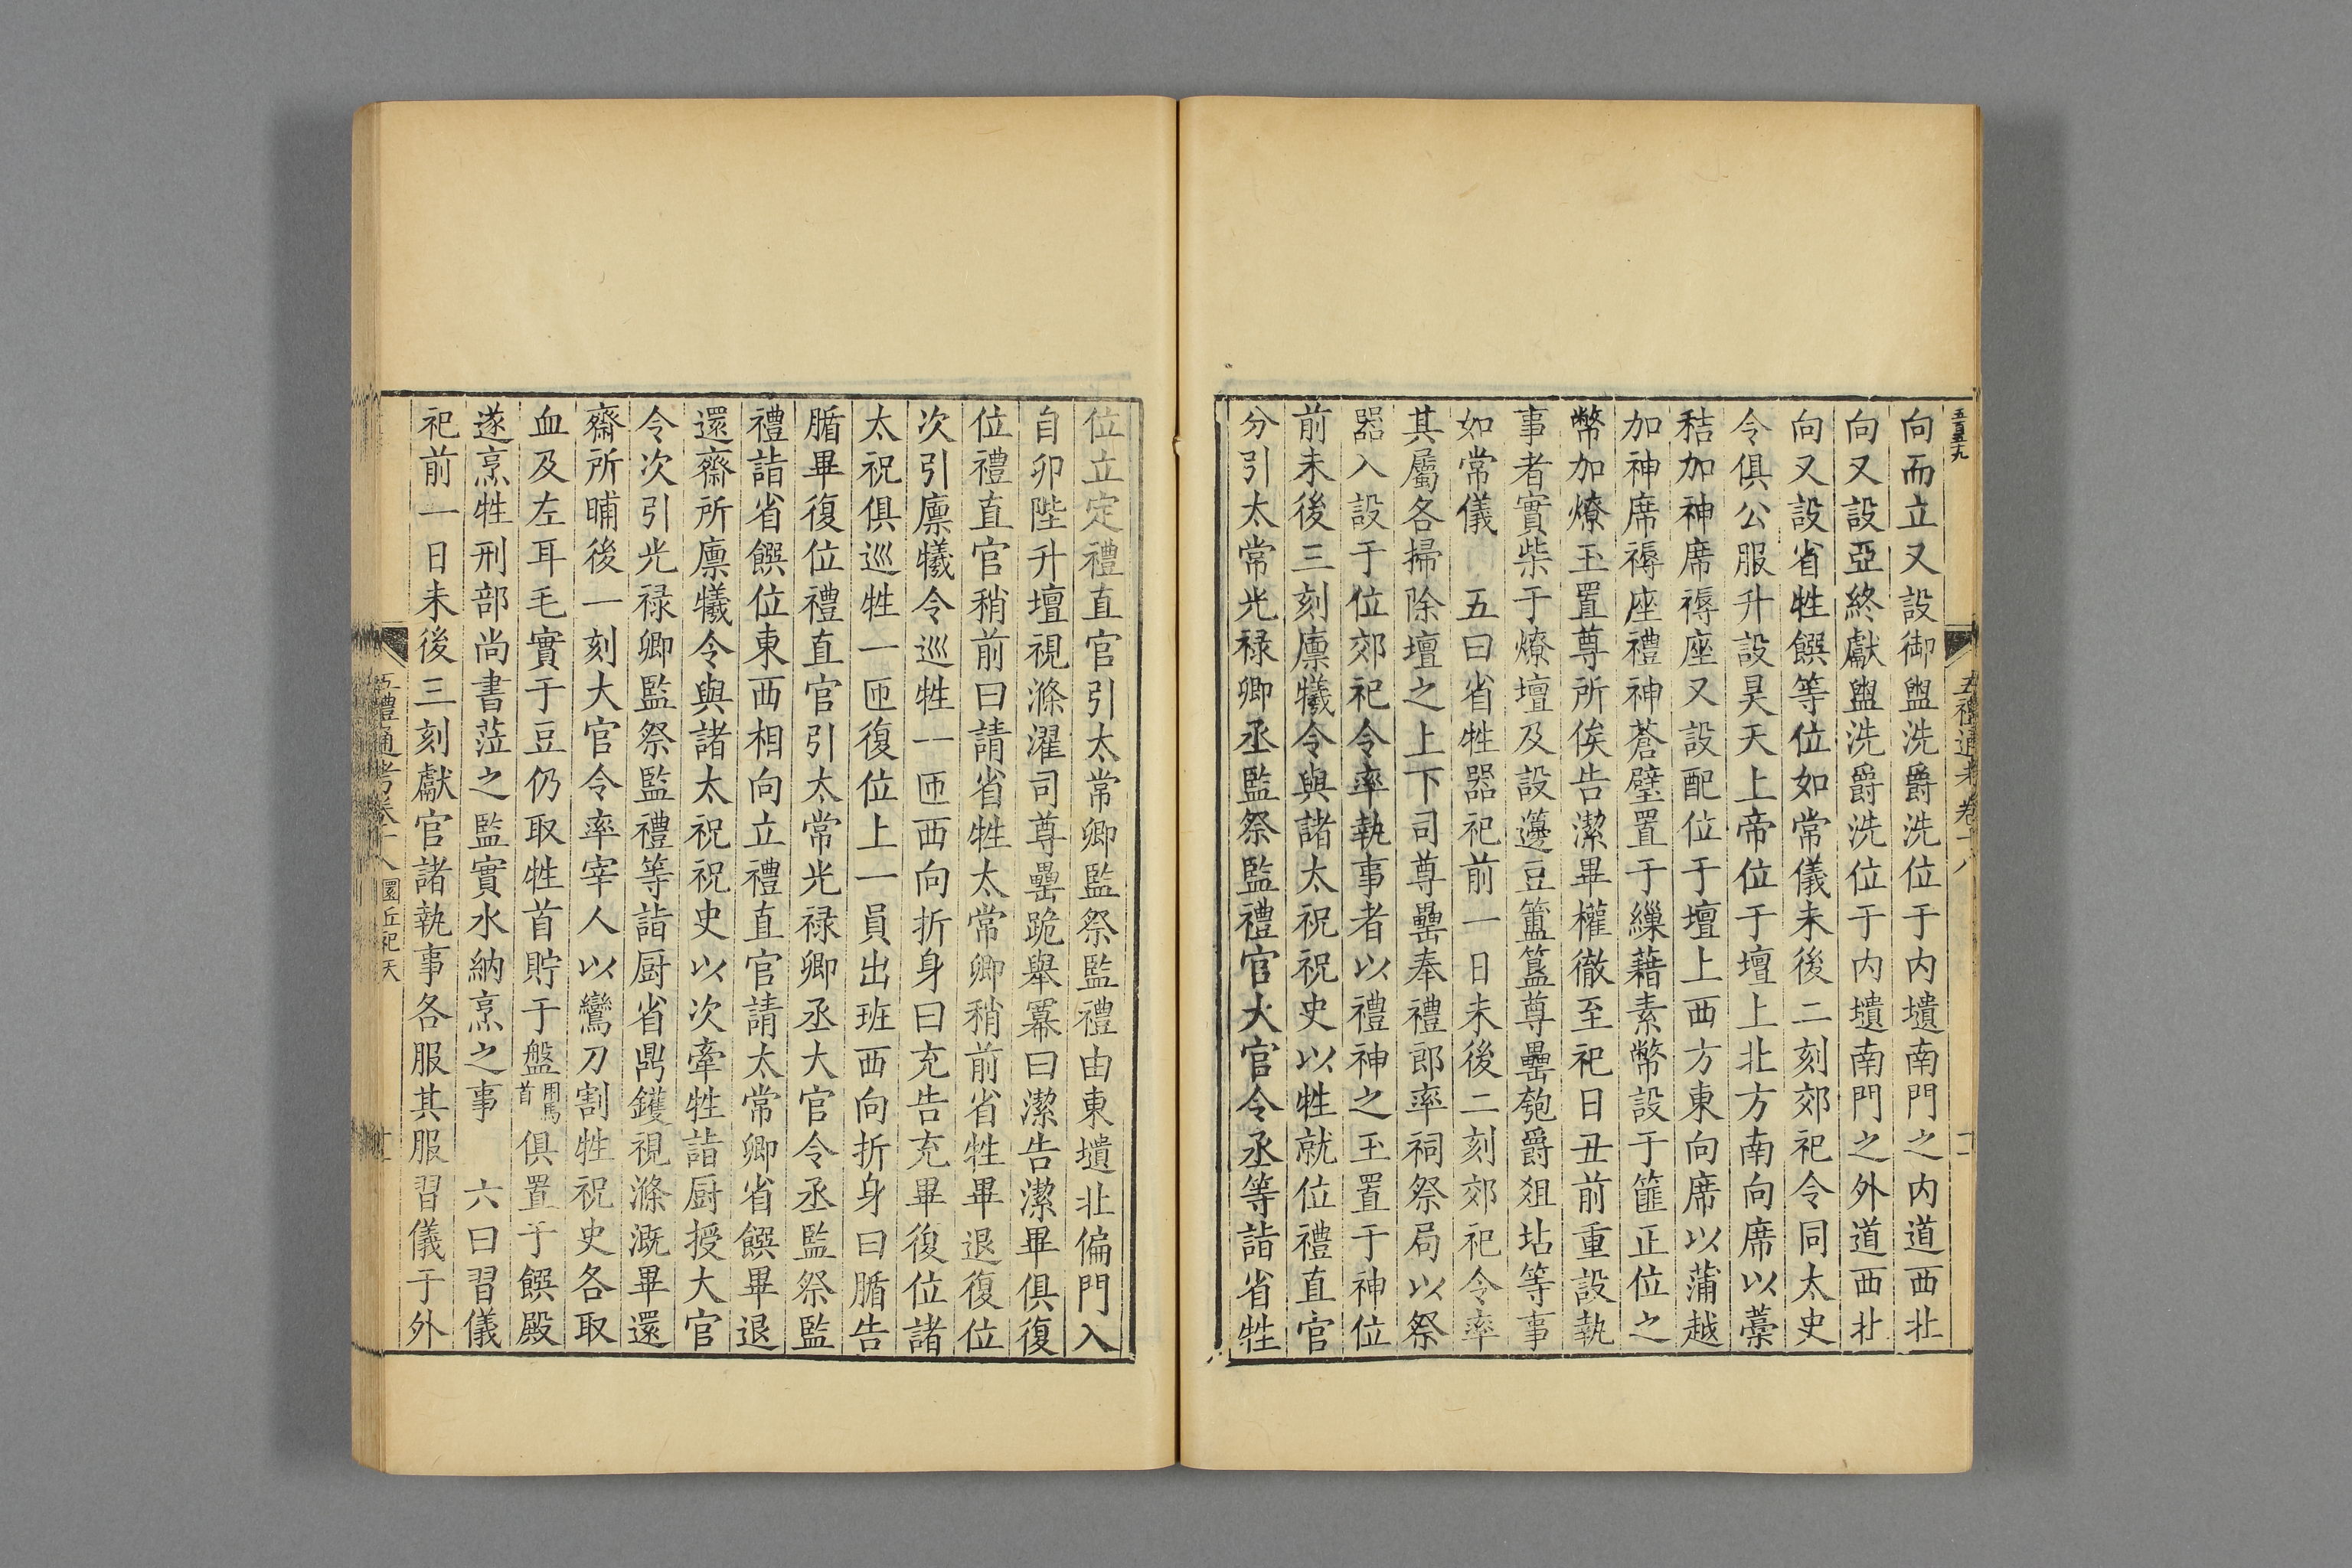 五百五十九
五禮通考卷十八
向而立又設御盥洗爵洗位于内壝南門之内道西北
向又設亞終獻盥洗爵洗位于内壝南門之外道西北
向又設省牲饌等位如常儀未後二刻郊祀令同太史
令俱公服升設昊天上帝位于壇上北方南向席以藁
秸加神席褥座又設配位于壇上西方東向席以蒲越
加神席褥座禮神蒼璧置于繅藉素幣設于篚正位之
幣加燎玉置尊所俟告潔畢權徹至祀日丑前重設執
事者實柴于燎壇及設籩豆簠簋尊罍匏爵俎坫等事
如常儀　五曰省牲器祀前一日未後二刻郊祀令率
其屬各掃除壇之上下司尊罍奉禮郎率祠祭局以祭
器入設于位郊祀令率執事者以禮神之玉置于神位
前未後三刻廪犧令與諸太祝祝史以牲就位禮直官
分引太常光禄卿丞監祭監禮官大官令丞等詣省牲
位立定禮直官引太常卿監祭監禮由東壝北偏門入
自卯陛升壇視滌濯司尊罍跪舉羃曰潔告潔畢俱復
位禮直官稍前曰請省牲太常卿稍前省牲畢退復位
次引廪犧令巡牲一匝西向折身曰充告充畢復位諸
太祝俱巡牲一匝復位上一員出班西向折身曰腯告
腯畢復位禮直官引太常光禄卿丞大官令丞監祭監
禮詣省饌位東西相向立禮直官請太常卿省饌畢退
還齋所廪犧令與諸太祝祝史以次牽牲詣厨授大官
令次引光禄卿監祭監禮等詣厨省鼎鑊視滌溉畢還
齋所晡後一刻大官令率宰人以鸞刀割牲祝史各取
血及左耳毛實于豆仍取牲首貯于盤用馬首俱置于饌殿
遂烹牲刑部尚書蒞之監實水納烹之事　六曰習儀
祀前一日未後三刻獻官諸執事各服其服習儀于外
五禮通考卷十八　圜丘祀天